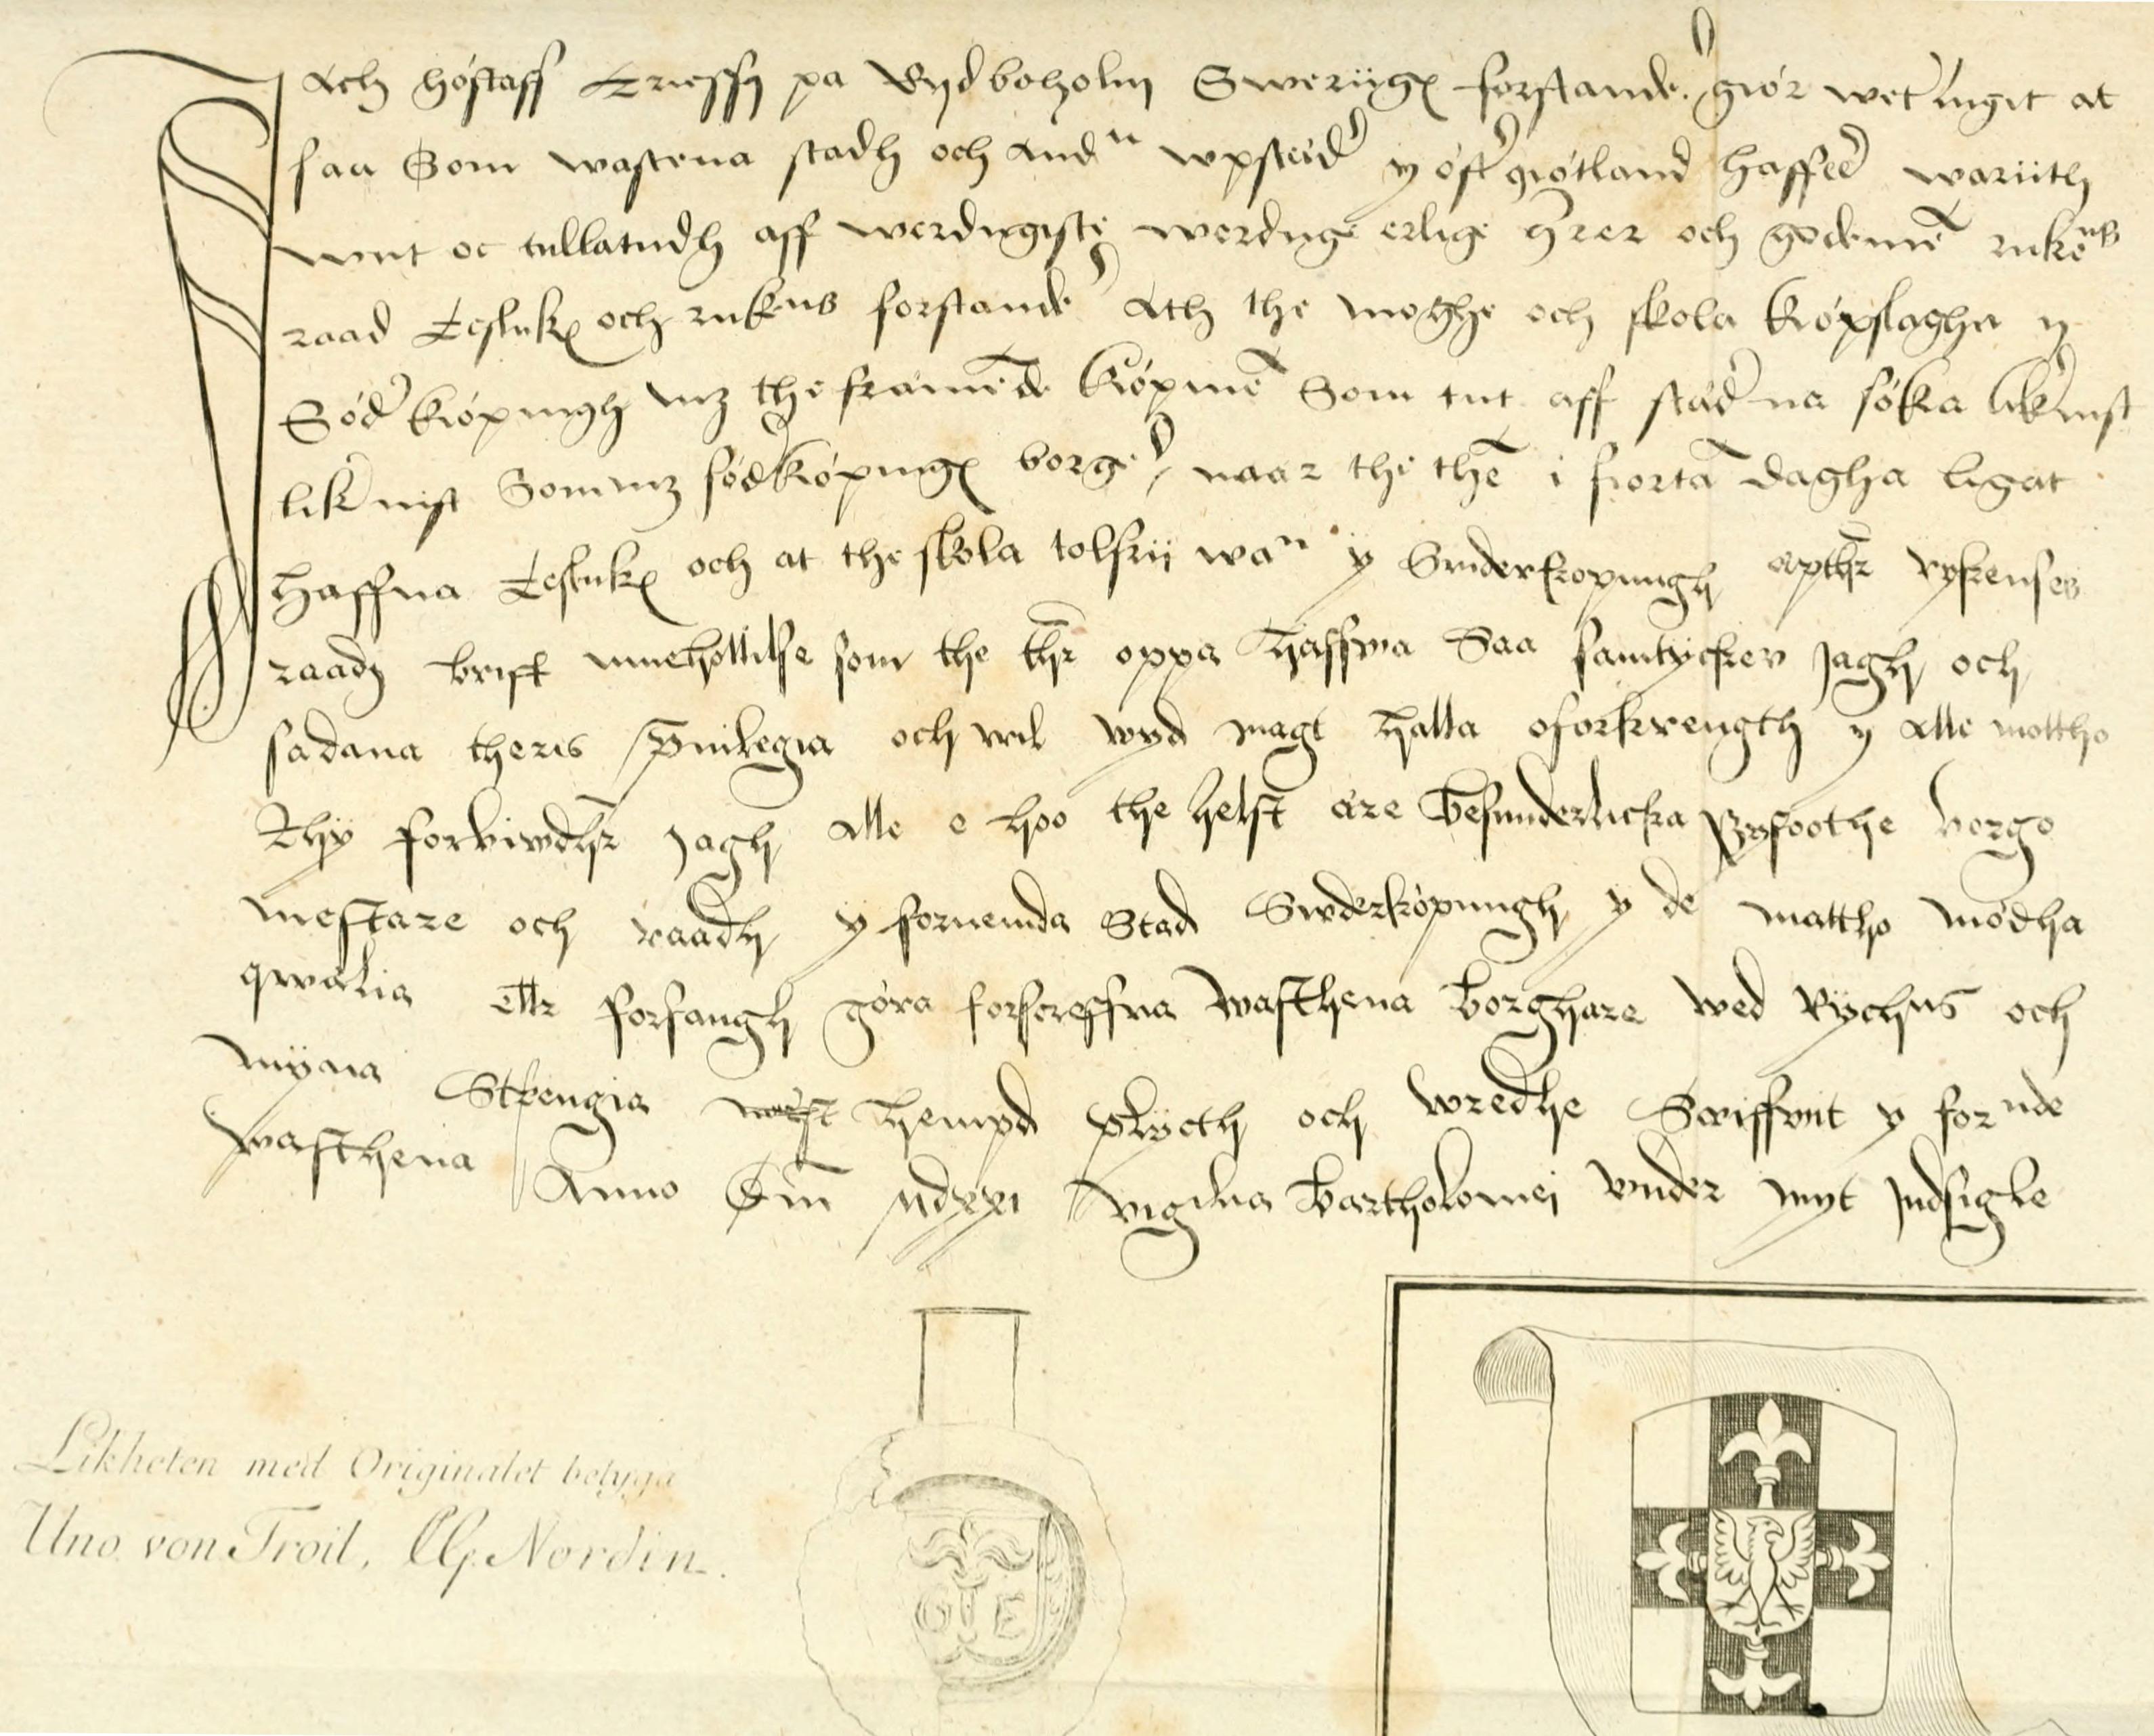 Jach Göstaff Ericssy pa Rydboholm Sweriigx forstande. giör wet̉ligit at
saa Som wastena stadh och Andn wpstädh̉ y öst̉ giötland haffe̾ wariith
wnt oc tillatidh aff werdigiste werdige erlige h̄rer och godemē rikēns
raad Teslikx och rikens forstande̾ Ath the moghe och skola köpslagha y
Söd̉ köpingh mz the främēde köpmē Som tiit aff städ̉na söka likẘist
lik wist Som mz söd̉köpingx borge̾ naar the thē i fiortā dagha ligat
haffua Teslikx och at the skola tolfrii wan y Suderkopungh äpthr rykenses
raadz briff innehollilse som the thr oppa haffwa Saa samtycker Jagh och
sadana theris p̄uilegia och wil wyd magt halla oforkrength y Alle mattho
Thy forbiwdhr Jagh Alle e hoo the helst äre besunderlicka ffogothe borgo
mestare och raadh y fornemda Stad Swderköpungh y de mattho mödha
qwälia ellr forfangh göra forscreffna wasthena borghare wed Rÿchns och
myna Strengia hempd plycth och wredhe Scriffwit y fornde
wasthena Anno Dm̄ Mdxxi vigilia Bartholomei vnder myt Jndsigle
G E
Likheten med Originalet betyga
Uno von Troil, C.G. Nordin.